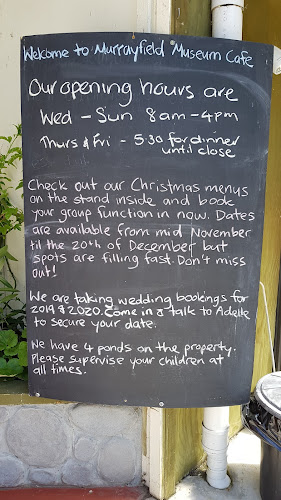 Welcome to Murrayfield Museum Cafe
Our opening hours are
Wed - Sun 8am - 4pm
Thurs & Fri - 5:30 for dinner
until close
Check out our Christmas menus
on the stand inside and book
your group function in now. Dates
are available from mid November
til the 20th of December but
spots are filling fast. Don't miss
out!
We are taking wedding bookings for
2019 & 2020. Come in & talk to Adelle
to secure your date.
We have 4 ponds on the property.
Please supervise your children at
all times.